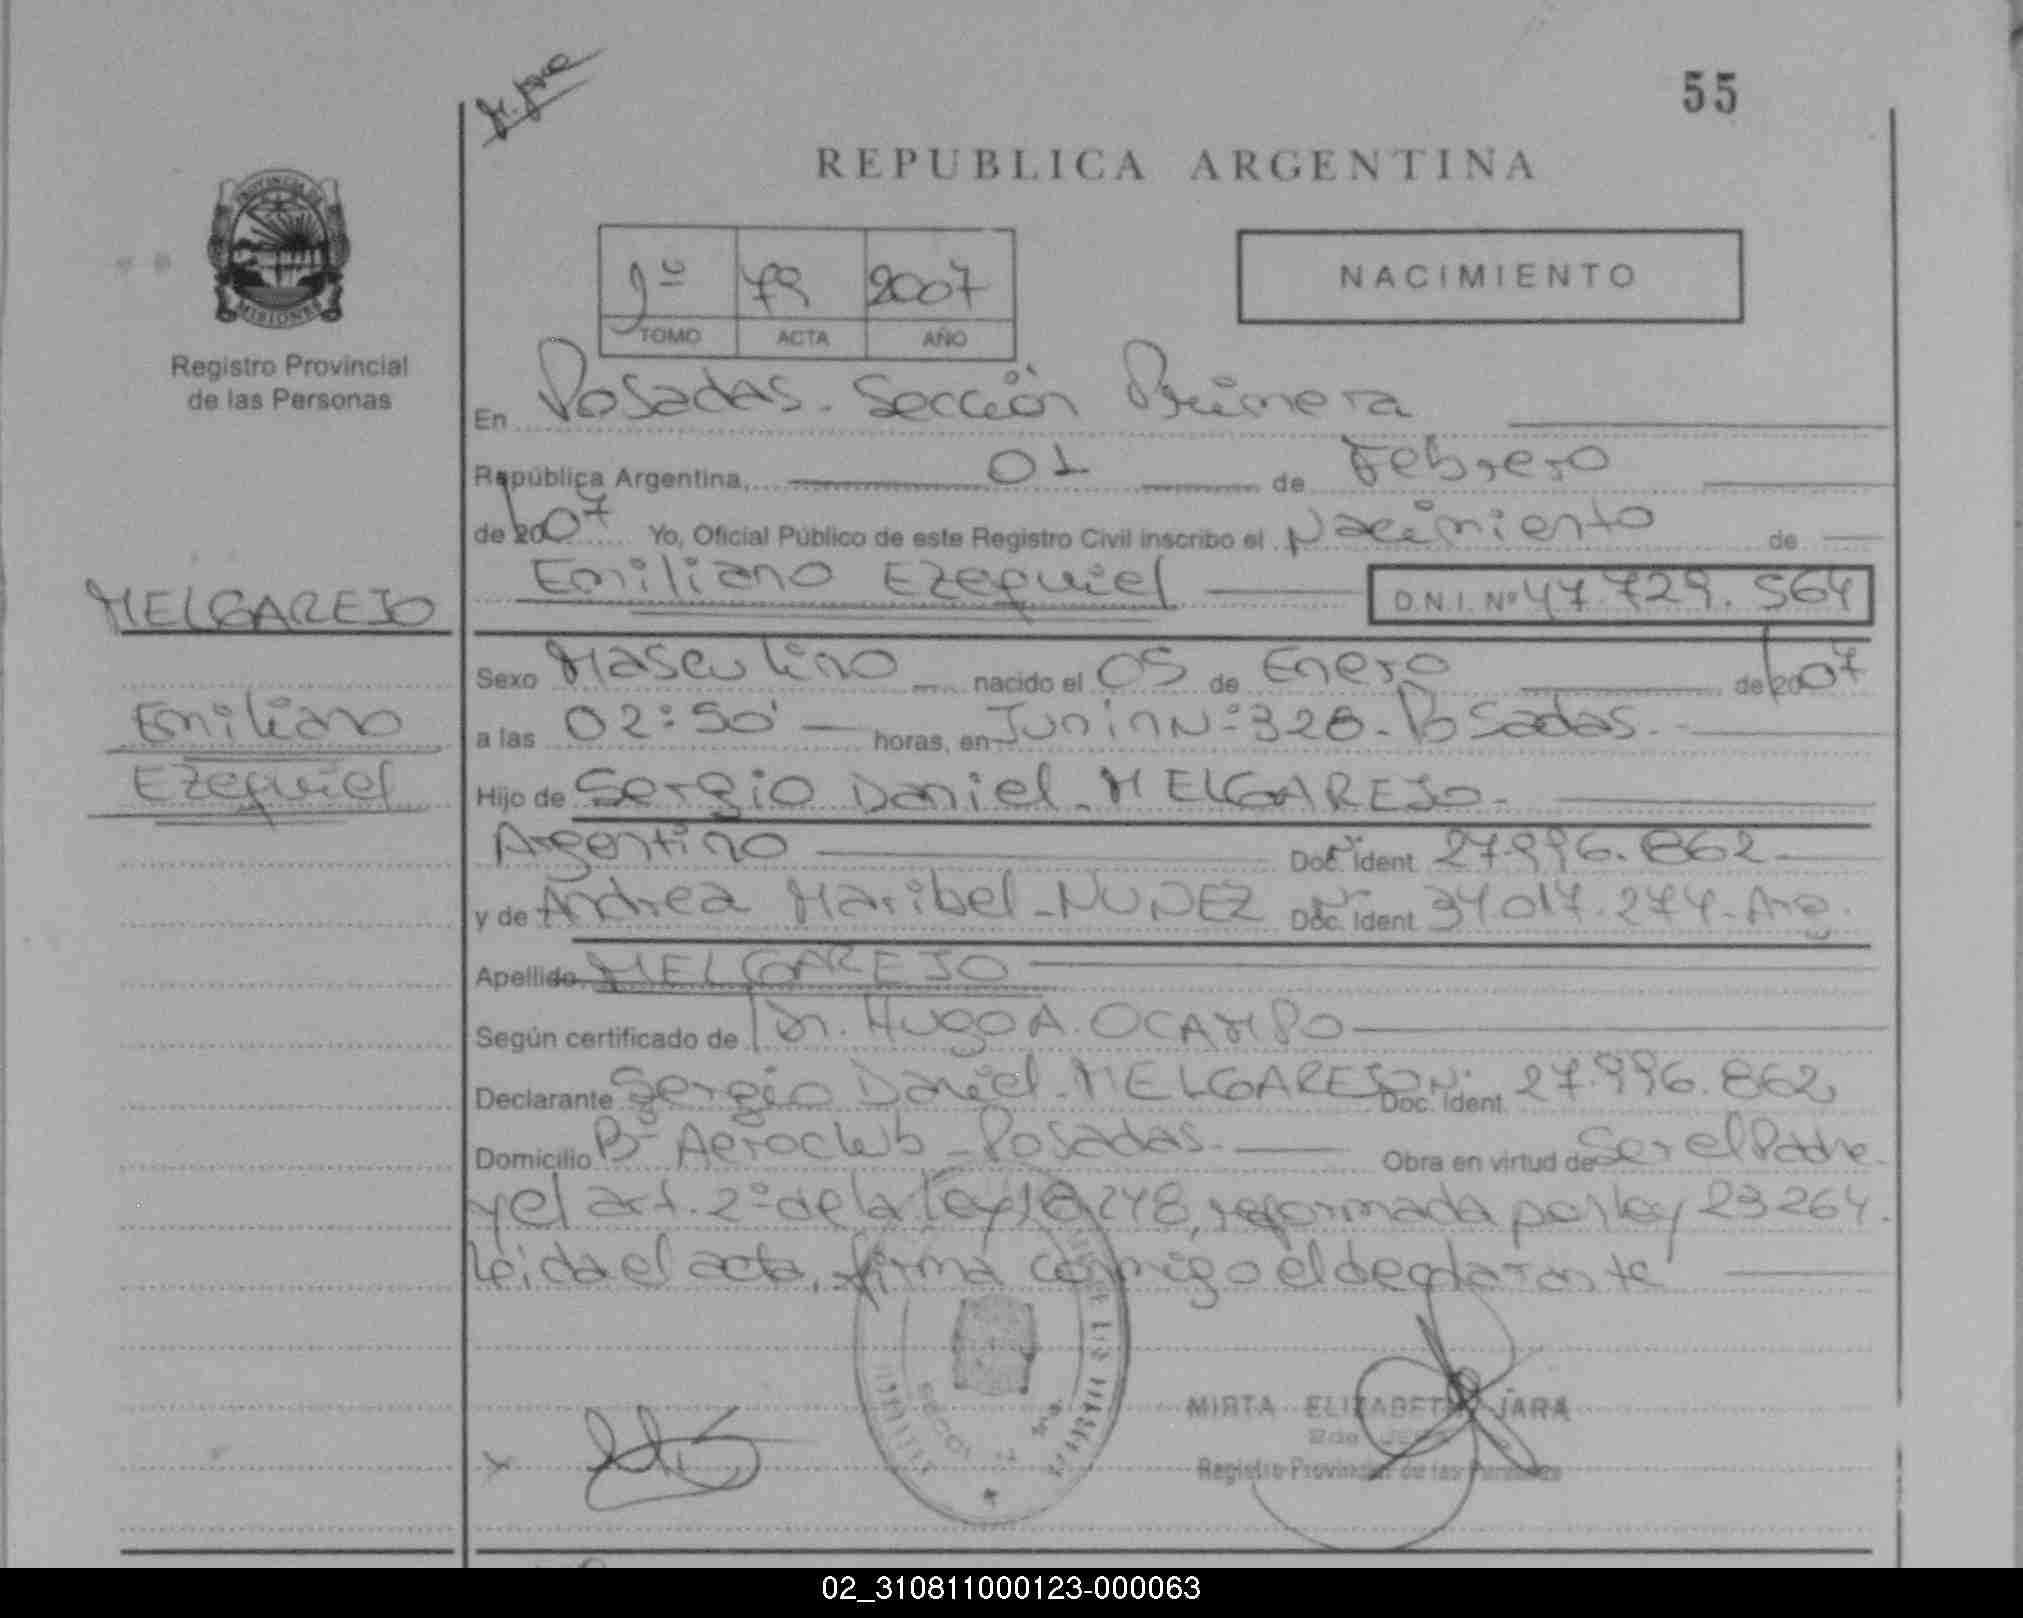 55
REPUBLICA ARGENTINA
PROVINCIA DE
MISIONES
Registro Provincial
de las Personas
1º 79 2007
TOMO ACTA AÑO
NACIMIENTO
En Posadas. Sección Primera
República Argentina, 01 de Febrero
de 2007 Yo, Oficial Público de este Registro Civil inscribo el Nacimiento de
Emiliano Ezequiel D.N.I. Nº 47.729.564
MELGAREJO
Emiliano
Ezequiel
Sexo Masculino nacido el 05 de Enero de 2007
a las 02:50' horas, en Junin Nº 328. Posadas.
Hijo de Sergio Daniel. MELGAREJO.
Argentino Doc. Ident. Nº 27.996.862
y de Andrea Maribel. NUNEZ Doc. Ident. Nº 34017.274. Arg.
Apellido MELGAREJO
Según certificado de Dr. Hugo A. OCAMPO
Declarante Sergio Daniel. MELGAREJO Doc. Ident. Nº 27.996.862
Domicilio Bº Aeroclub. Posadas. Obra en virtud de Ser el Padre
y el art. 2º de la ley 18248, reformada por ley 23264.
Leida el acta, firma conmigo el declarante
MIRTA ELIZABETH JARA
Registro Provincial de las Personas
02_310811000123-000063